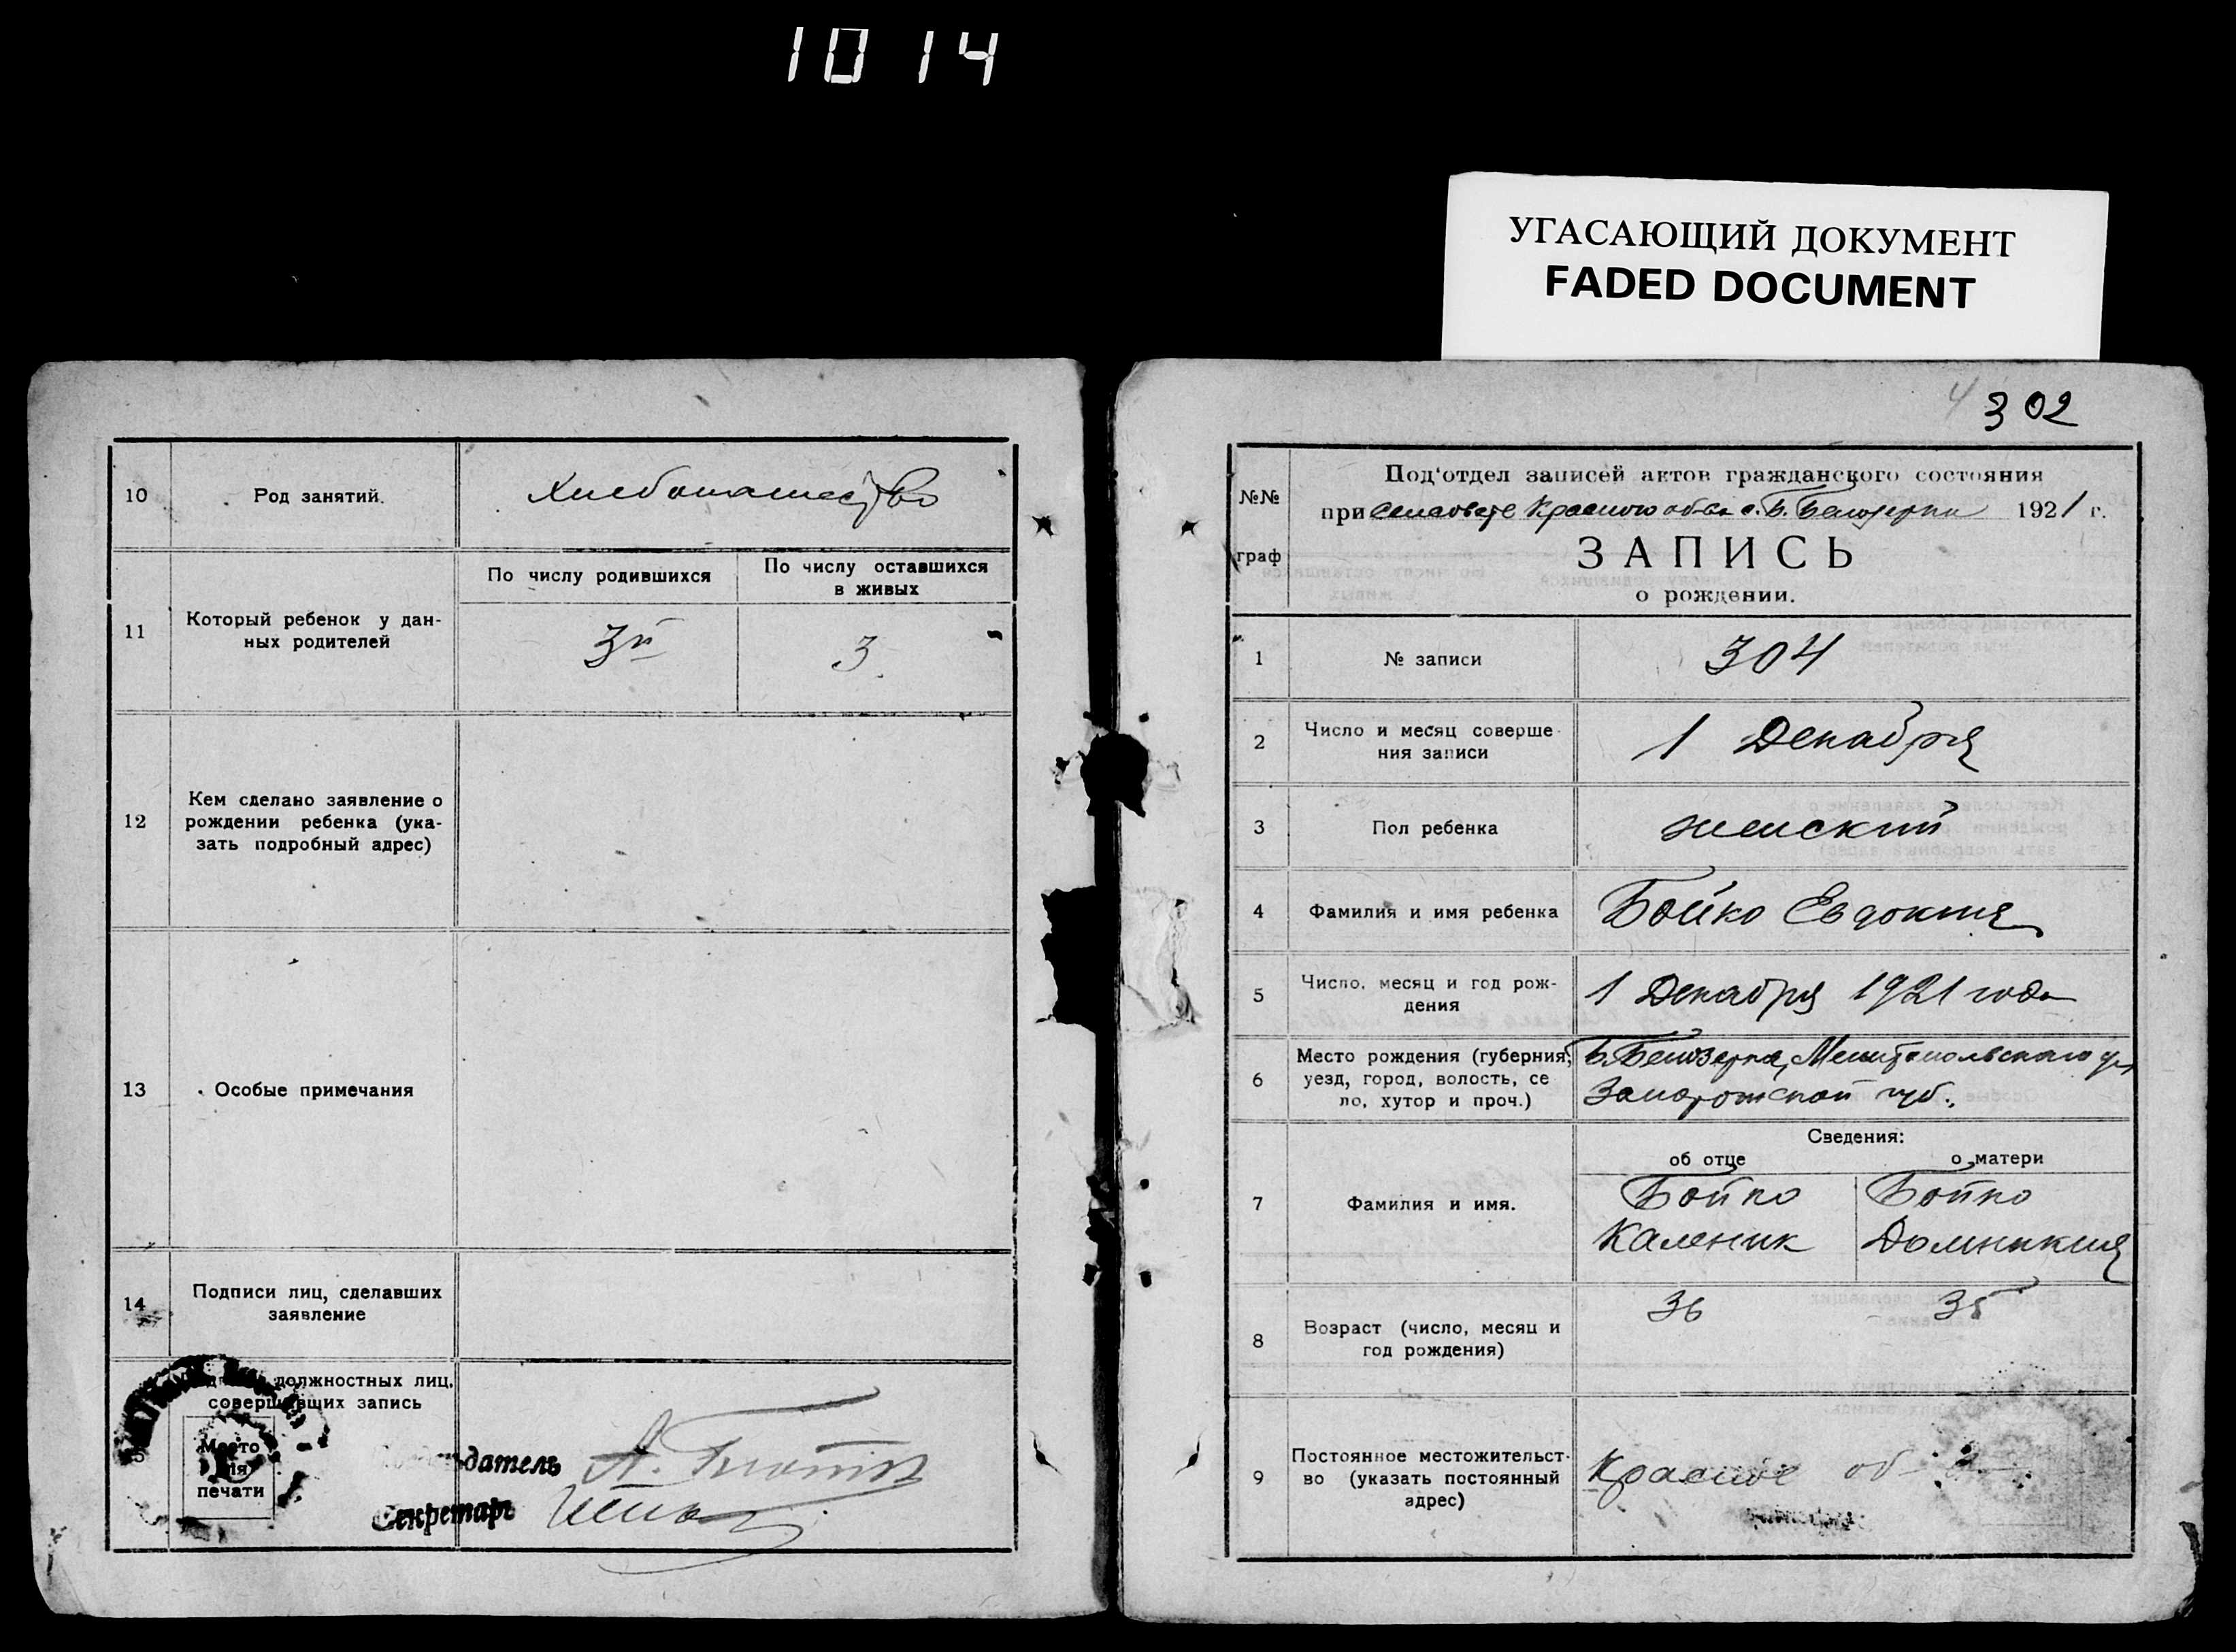 10 14
УГАСАЮЩИЙ ДОКУМЕНТ
FADED DOCUMENT
10
Род занятий.
Хлебопашество
11
Который ребенок у дан-
ных родителей
По числу родившихся
По числу оставшихся
в живых
3й
3
12
Кем сделано заявление о
рождении ребенка (ука-
зать подробный адрес)
13
Особые примечания
14
Подписи лиц, сделавших
заявление
должностных лиц,
совершавших запись
Место
для
печати
датель
Секретарь
4 302
№№
граф
Под'отдел записей актов гражданского состояния
при сельсовете Красного об-ва с. Б. Белозерки 1921 г.
ЗАПИСЬ
о рождении.
1
№ записи
304
2
Число и месяц соверше-
ния записи
1 Декабря
3
Пол ребенка
женский
4
Фамилия и имя ребенка
Бойко Евдокия
5
Число, месяц и год рож-
дения
1 Декабря 1921 года
6
Место рождения (губерния,
уезд, город, волость, се
ло, хутор и проч.)
Б. Белозерка, Мелитопольского у.,
Запорожской губ.
Сведения:
об отце
о матери
7
Фамилия и имя.
Бойко
Каленик
Бойко
Домникия
8
Возраст (число, месяц и
год рождения)
36
35
9
Постоянное местожительст-
во (указать постоянный
адрес)
Красное об-